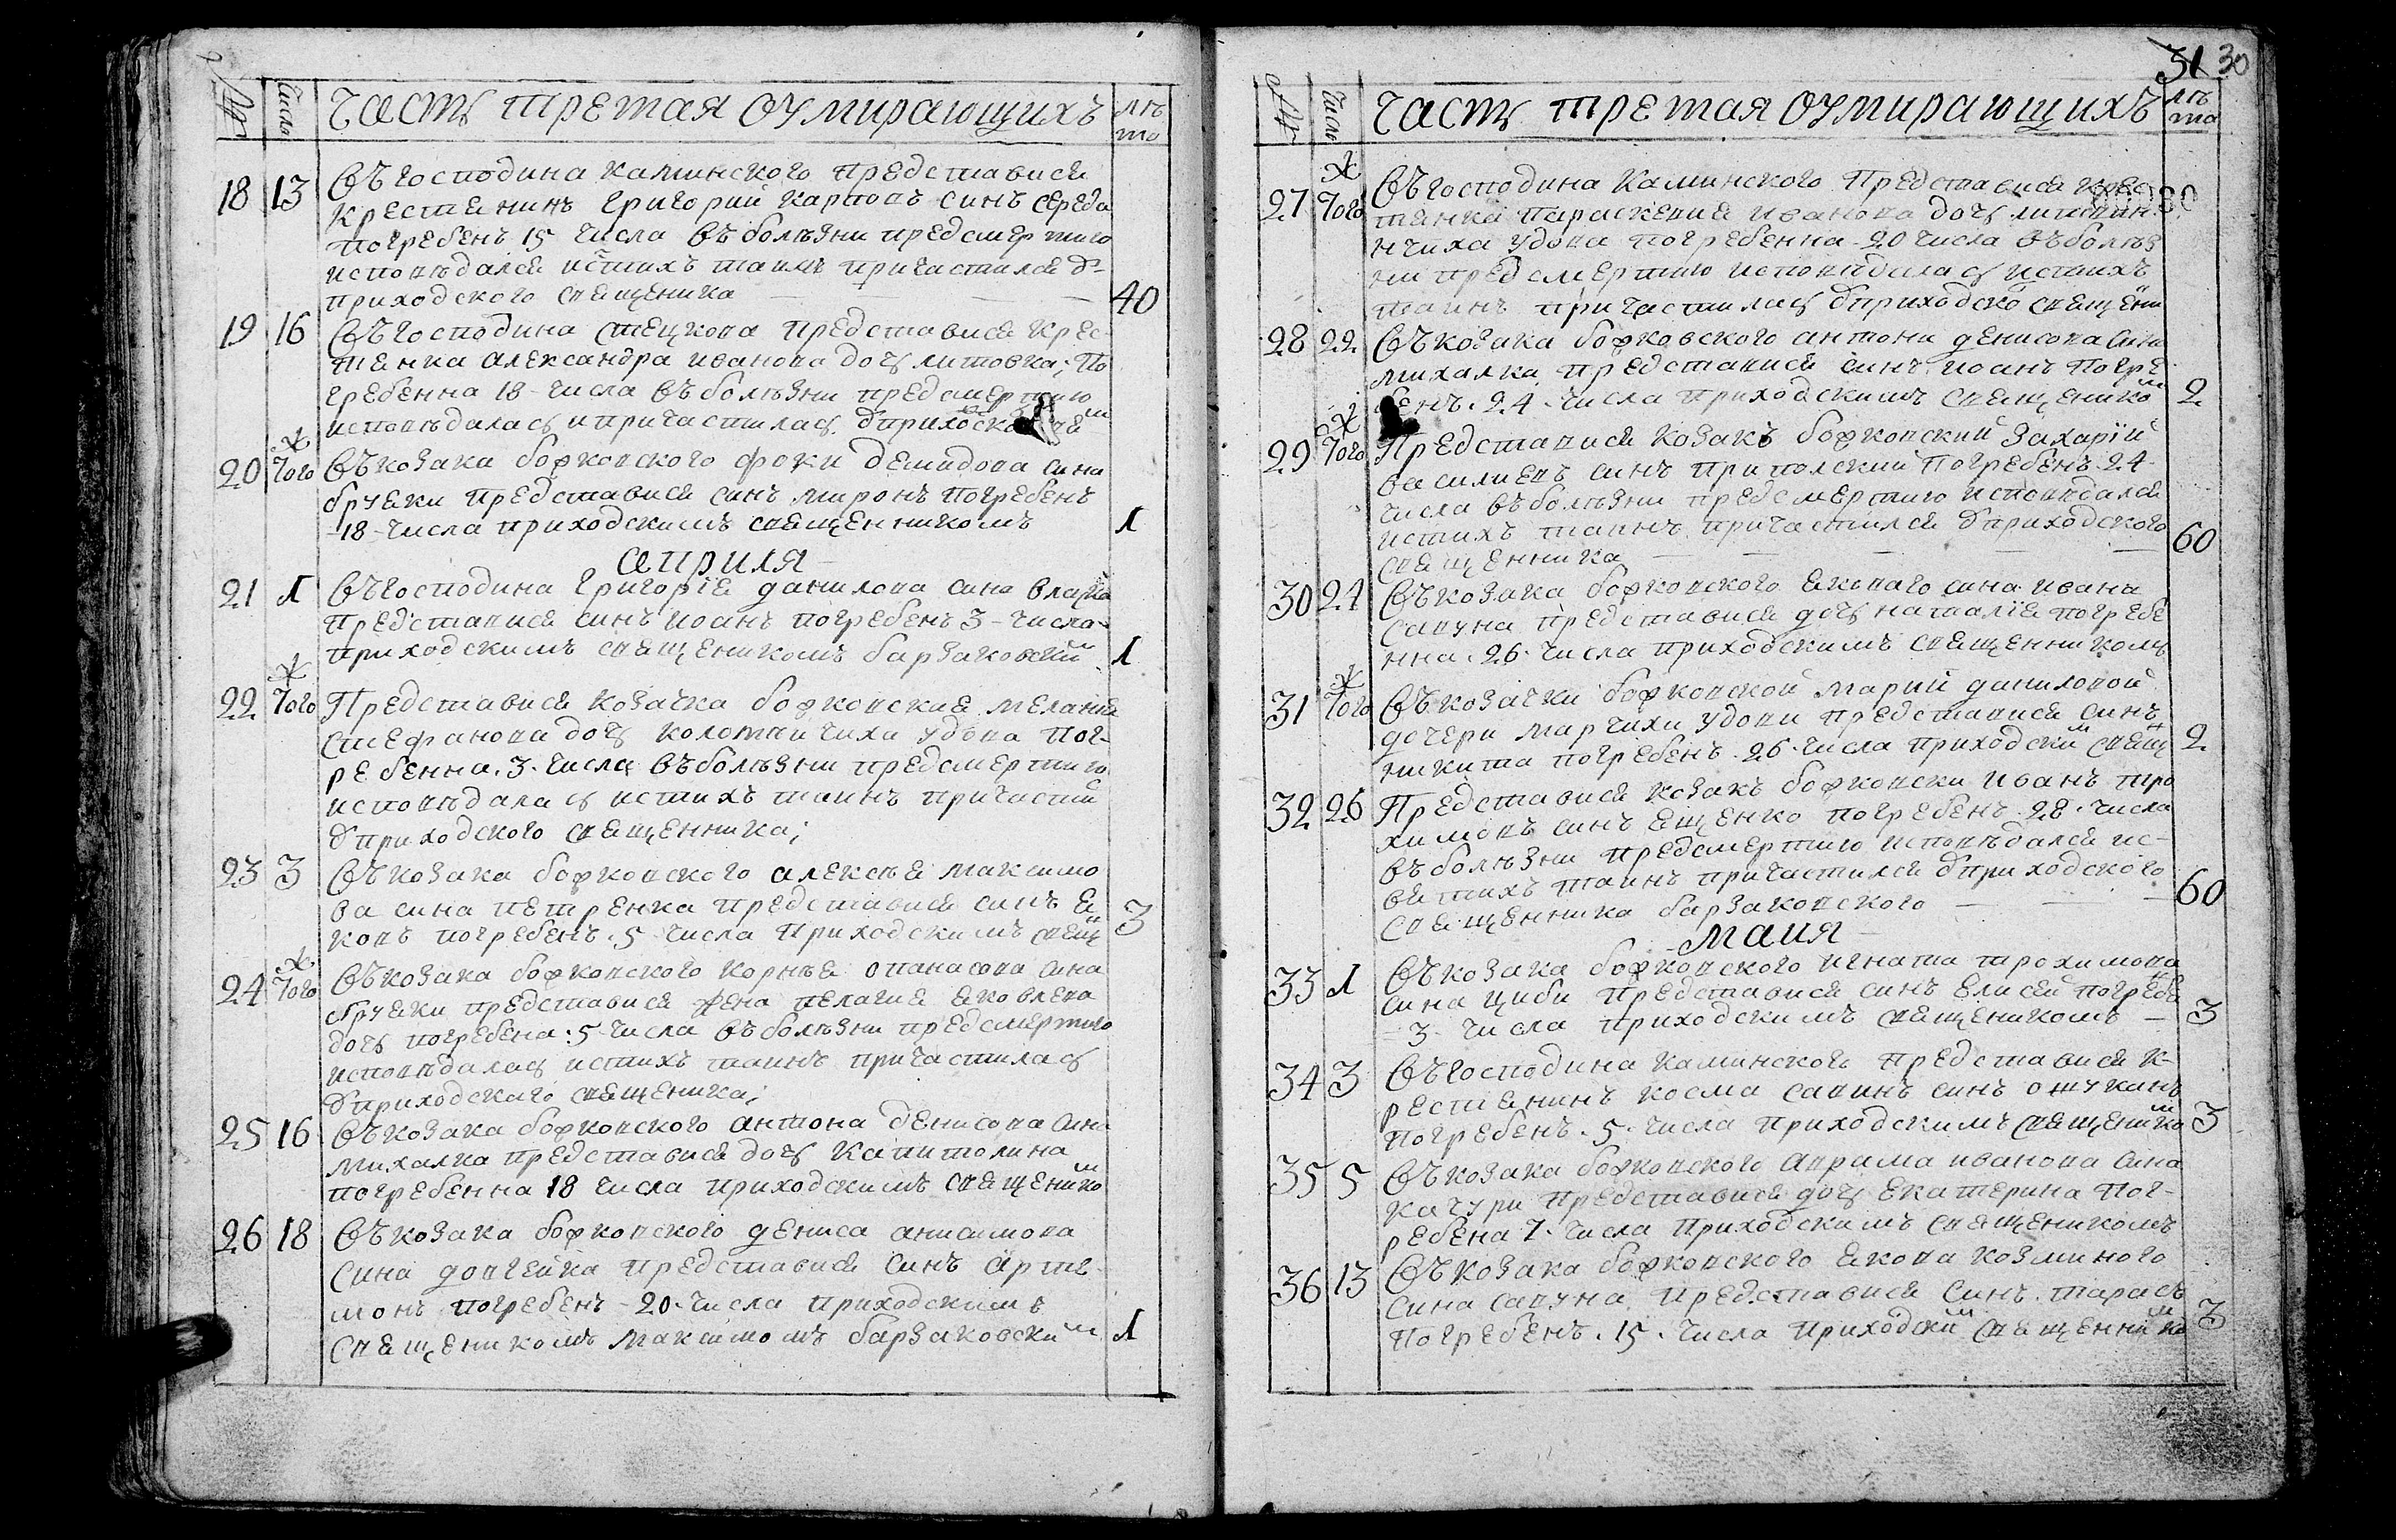 №
Число
Часть третая оумирающихъ
лѣта
18 13 Въ господина Каминского представися
крестянинъ григорий карповъ синъ середа
погребенъ 15 числа въ болѣзни предсмертню
исповѣдался истихъ таинъ причастился ѿ
приходского свящeника — — — 40
19 16 Въ господина стецкова представися крес-
тянка александра иванова дочь литовка; по
гребенна 18 числа въ болѣзни предсмертню
исповѣдалась и причастилась ѿ приходско
20 Того Въ козака божковского фоки демидова сина
бруяки представися синъ миронъ погребенъ
-18- числа приходскимъ священникомъ 1
априля
21 1 Въ господина григорія данилова сина
представися синъ иоанъ погребенъ 3 числа
приходскимъ священикомъ барзаковский 1
22 Того Представися козачка божковская мелания
стефанова дочь коломийчиха удова пог-
ребенна. 3. числа въ болѣзни предсмертню
исповѣдалась истихъ таинъ причасти
ѿ приходского священника;
23 3 Въ козака божковского алексѣя максимо
ва сина петренка представися синъ я
ковъ погребенъ. 5 числа приходскимъ свящ 3
24 Того Въ козака божковского корнѣя опанасова сина
бруяки представися жена пелагия яковлева
дочь погребена: 5 числа въ болѣзни предсмертню
исповѣдалась истихъ таинъ причастилась
ѿ приходскаго священика;
25 16 Въ козака божковского антона денисова сина
михалка представися дочь капитолина
погребенна 18 числа приходскимъ священико
26 18 Въ козака божковского дениса анисимова
сина довгейка представися синъ арте-
монъ погребенъ -20- числа приходскимъ
священикомъ максимомъ барзаковским 1
31 30
№
Число
Часть третая оумирающихъ
лѣта
27 Того Въ господина Каминского представися крес
тянка параскевия иванова дочь
нчиха удова погребенна -20 числа въ болѣз
ни предсмертню исповѣдалась истихъ
таинъ причастилась ѿ приходско священи
28 22 Въ козака божковского антона денисова сина
михалка представися синъ иоанъ погре
бенъ. 24. числа приходскимъ священико 2
29 Того Представися козакъ божковский захарій
василиевъ синъ припольский погребенъ 24
числа въ болѣзни предсмертню исповѣдался
истихъ таинъ причастился ѿ приходского
священника — — — — 60
30 24 Въ козака божковского яковаго сина ивана
сапуна представися дочь наталія погребе
нна. 26. числа приходскимъ священникомъ
31 Того Въ козачки божковской марий даниловой
дочери марчихи удови представися синъ
никита погребенъ. 26. числа приходским свящ 2
32 26 Представися козакъ божковски иванъ тро
химовъ синъ ященко погребенъ. 28. числа
въ болѣзни предсмертню исповѣдался ис-
вятихъ таинъ причастился ѿ приходского
священника барзаковского — — — 60
маия
33 1 Въ козака божковского игната трохимова
сина циби представися синъ елисей погребе
-3- числа приходскимъ священикомъ — 3
34 3 Въ господина каминского представися к-
рестянинъ косма савинъ синъ
погребенъ. 5. числа приходскимъ священико 3
35 5 Въ козака божковского аврама иванова сина
качури представися дочь екатерина пог-
ребена 7. числа приходскимъ священикомъ
36 13 Въ козака божковского якова козминого
сина сапуна представися синъ тарасъ
погребенъ. 15. числа приходским священнико 3